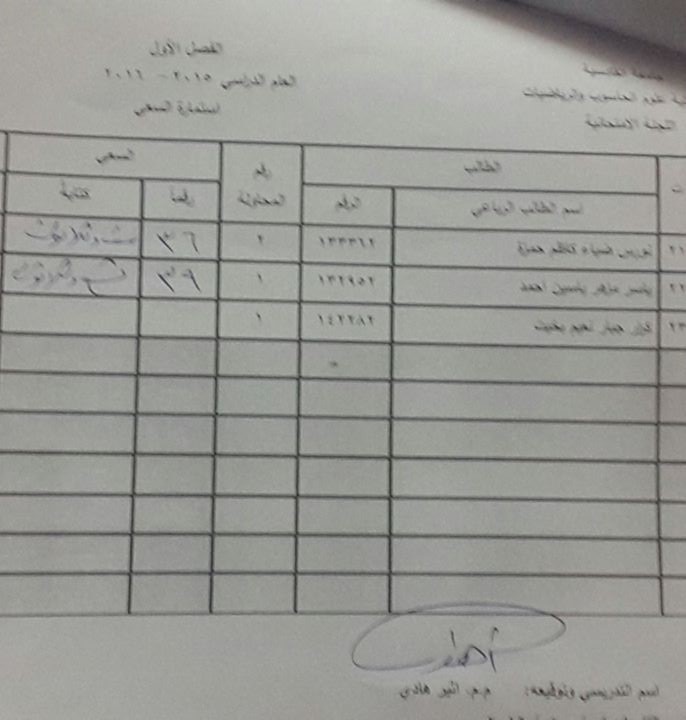 جامعة القادسية
كلية علوم الحاسوب والرياضيات
اللجنة الامتحانية
الفصل الأول
العام الدراسي ٢٠١٥ - ٢٠١٦
استمارة السعي
ت الطالب رقم المحاولة السعي
اسم الطالب الرباعي الرقم رقما كتابة
٢١ نورس ضياء كاظم حمزة ١٣٣٣٦٢ ٢ ٣٦ ست وثلاثون
٢٢ ياسر مزهر ياسين احمد ١٣٢٩٥٢ ١ ٣٩ تسع وثلاثون
٢٣ كرار جبار نعيم بخيت ١٤٢٢٨٢ ١
اسم التدريسي وتوقيعه: م.م. اثير هادي